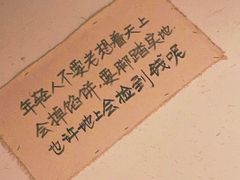 年轻人不要老想着天上
会掉馅饼,要脚踏实地
也许地上会捡到钱呢